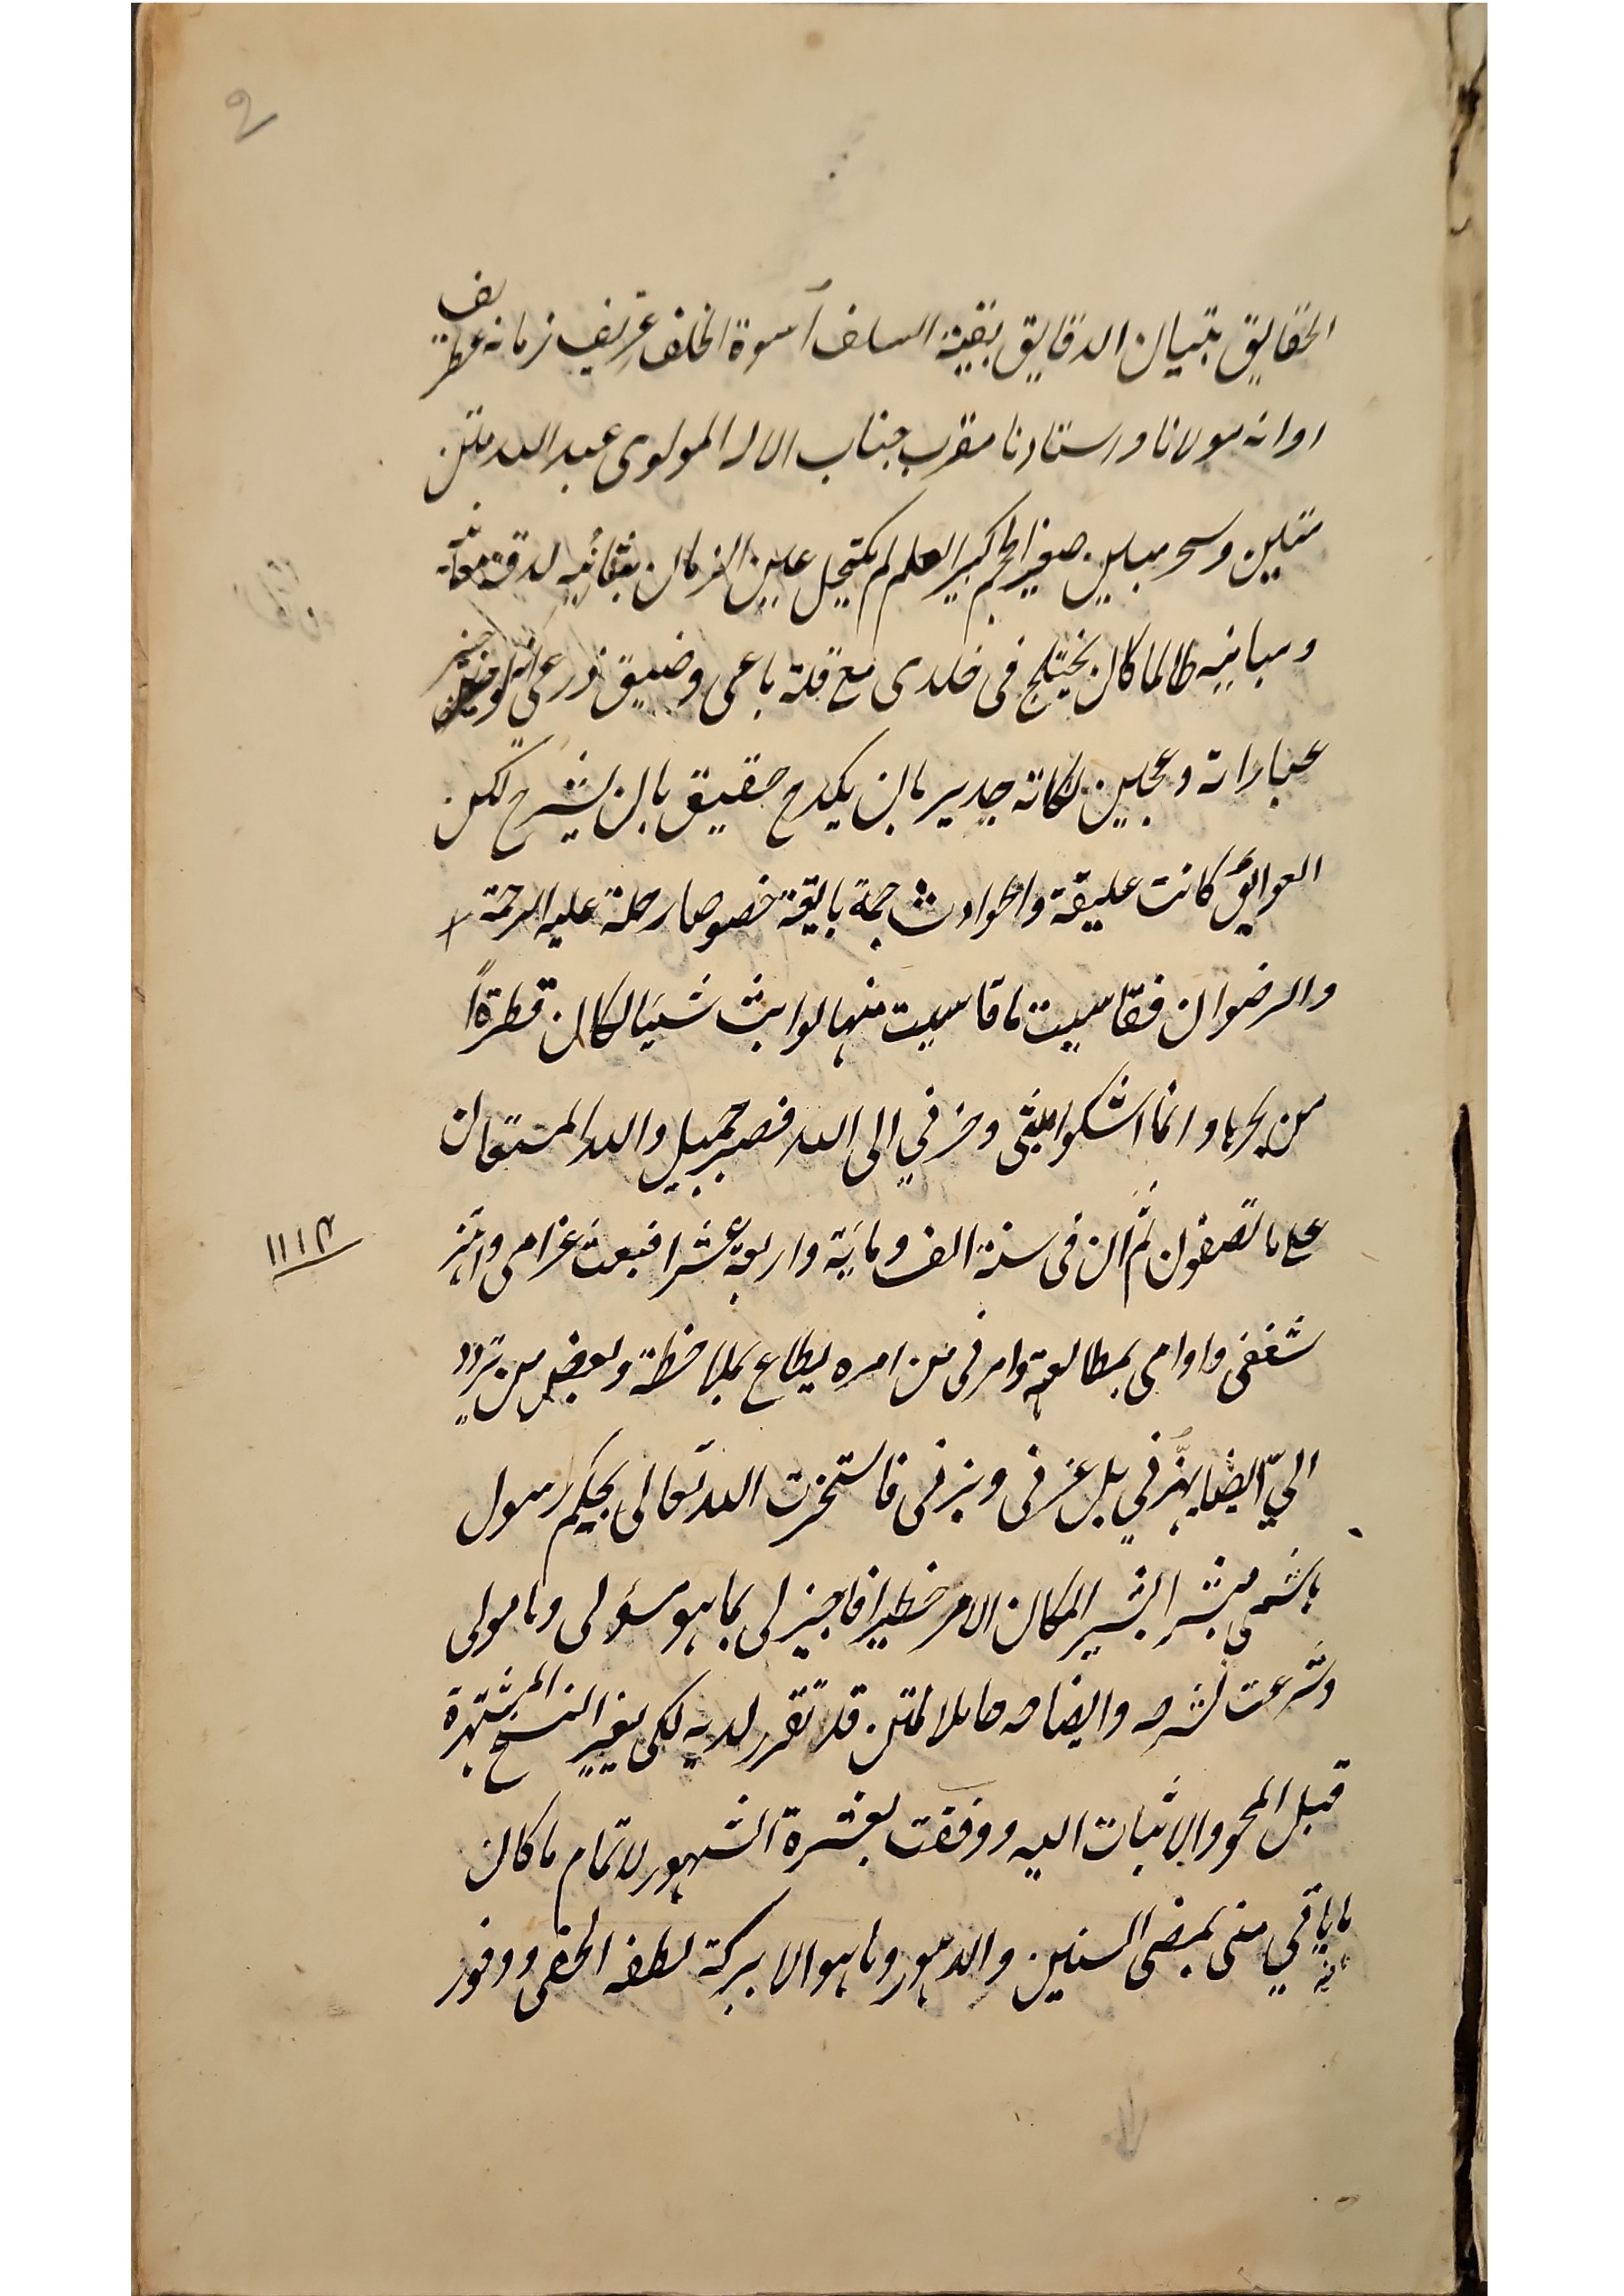 2
الحقايق بتبيان الدقايق بقية السلف أسوة الخلف عريف زمانه غطريف
اوانه مولانا واستادنا مقرب جناب الاله المولوى عبد الله متن
متين وسحر مبين صغير الحجم كبير العلم لم يكتحل عين الزمان بثانيه لدقة معانيه
ومبانيه طالما كان يختلج فى خلدى مع قلة باعى وضيق ذرعى
عباراته وعجين نكاته جدير بان يكدح حقيق بان يشرح لكن
العوايق كانت عليقة والحوادث جمة بايقة خصوصا رحلة عليه الرحمة
والرضوان فقاسيت ما قاسيت منها لو ابث شيئا لكان قطرةً
من بحرها وانما اشكوا بثى وحزني الى الله فصبر جميل والله المستعان
على ما تصفون ثم ان فى سنة الف ومائة واربعة عشر انبعث غرامى واهتز
۱۱۱۴
شغفى واوامى بمطالعته وامرنى من امره يطاع بملاحظة وبعض من تردد
اليّ ايضا يهزّني بل عزنى وبزنى فاستخرت الله تعالى بحكم رسول
هاشمى مبشر البشير لمكان الامر خطيرا فاجيز لى بما هو مسؤلى ومامولى
وشرعت لشرحه وايضاحه حاملا لمتن قد تقرر لديه لكى يغير النسخ المشتهرة
قبل المحو والاثبات اليه ووفقت بعشرة اشهر لاتمام ما كان
ياتي منى بمضى السنين والدهور وما هو الا ببركة لطفه الخفى ووفور